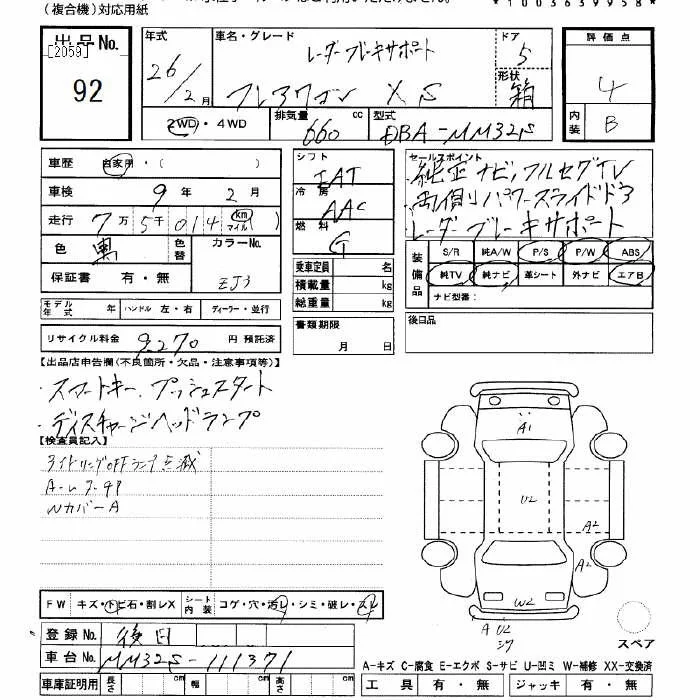 (複合機)対応用紙
*1003639958*
出品No.
[2059]
92
年式 26/2月
車名・グレード
レーダーブレーキサポート
フレアワゴン XS
ドア 5
形状 箱
評価点
4
内装 B
2WD・4WD
排気量 660 cc
型式 DBA-MM32S
車歴 自家用・( )
車検 9年 2月
走行 7万5千014 km マイル
色 黒 色替
カラーNo. ZJ3
保証書 有・無
シフト IAT
冷房 AAC
燃料 G
乗車定員 名
積載量 kg
総重量 kg
セールスポイント
・純正ナビ,フルセグTV
・両側パワースライドドア
・レーダーブレーキサポート
装備品
S/R 純A/W P/S P/W ABS
純TV 純ナビ 革シート 外ナビ エアB
ナビ型番:
モデル年式 年 ハンドル 左・右 ディーラー・並行
書類期限
月 日
後日品
リサイクル料金 9,270 円 預託済
【出品店申告欄(不良箇所・欠品・注意事項等)】
・スマートキー,プッシュスタート
・ディスチャージヘッドランプ
【検査員記入】
アイドリングOFFランプ点滅
WカバーA
A1
U2
A2
A2
W2
A U2
FW キズ・トビ石・割レX
シート内装 コゲ・穴・汚レ・シミ・破レ・スレ
スペア
登録No. 後日
車台No. MM32S-111371
A-キズ C-腐食 E-エクボ S-サビ U-凹ミ W-補修 XX-交換済
車庫証明用 長さ cm 幅 cm 高さ cm
工具 有・無 ジャッキ 有・無